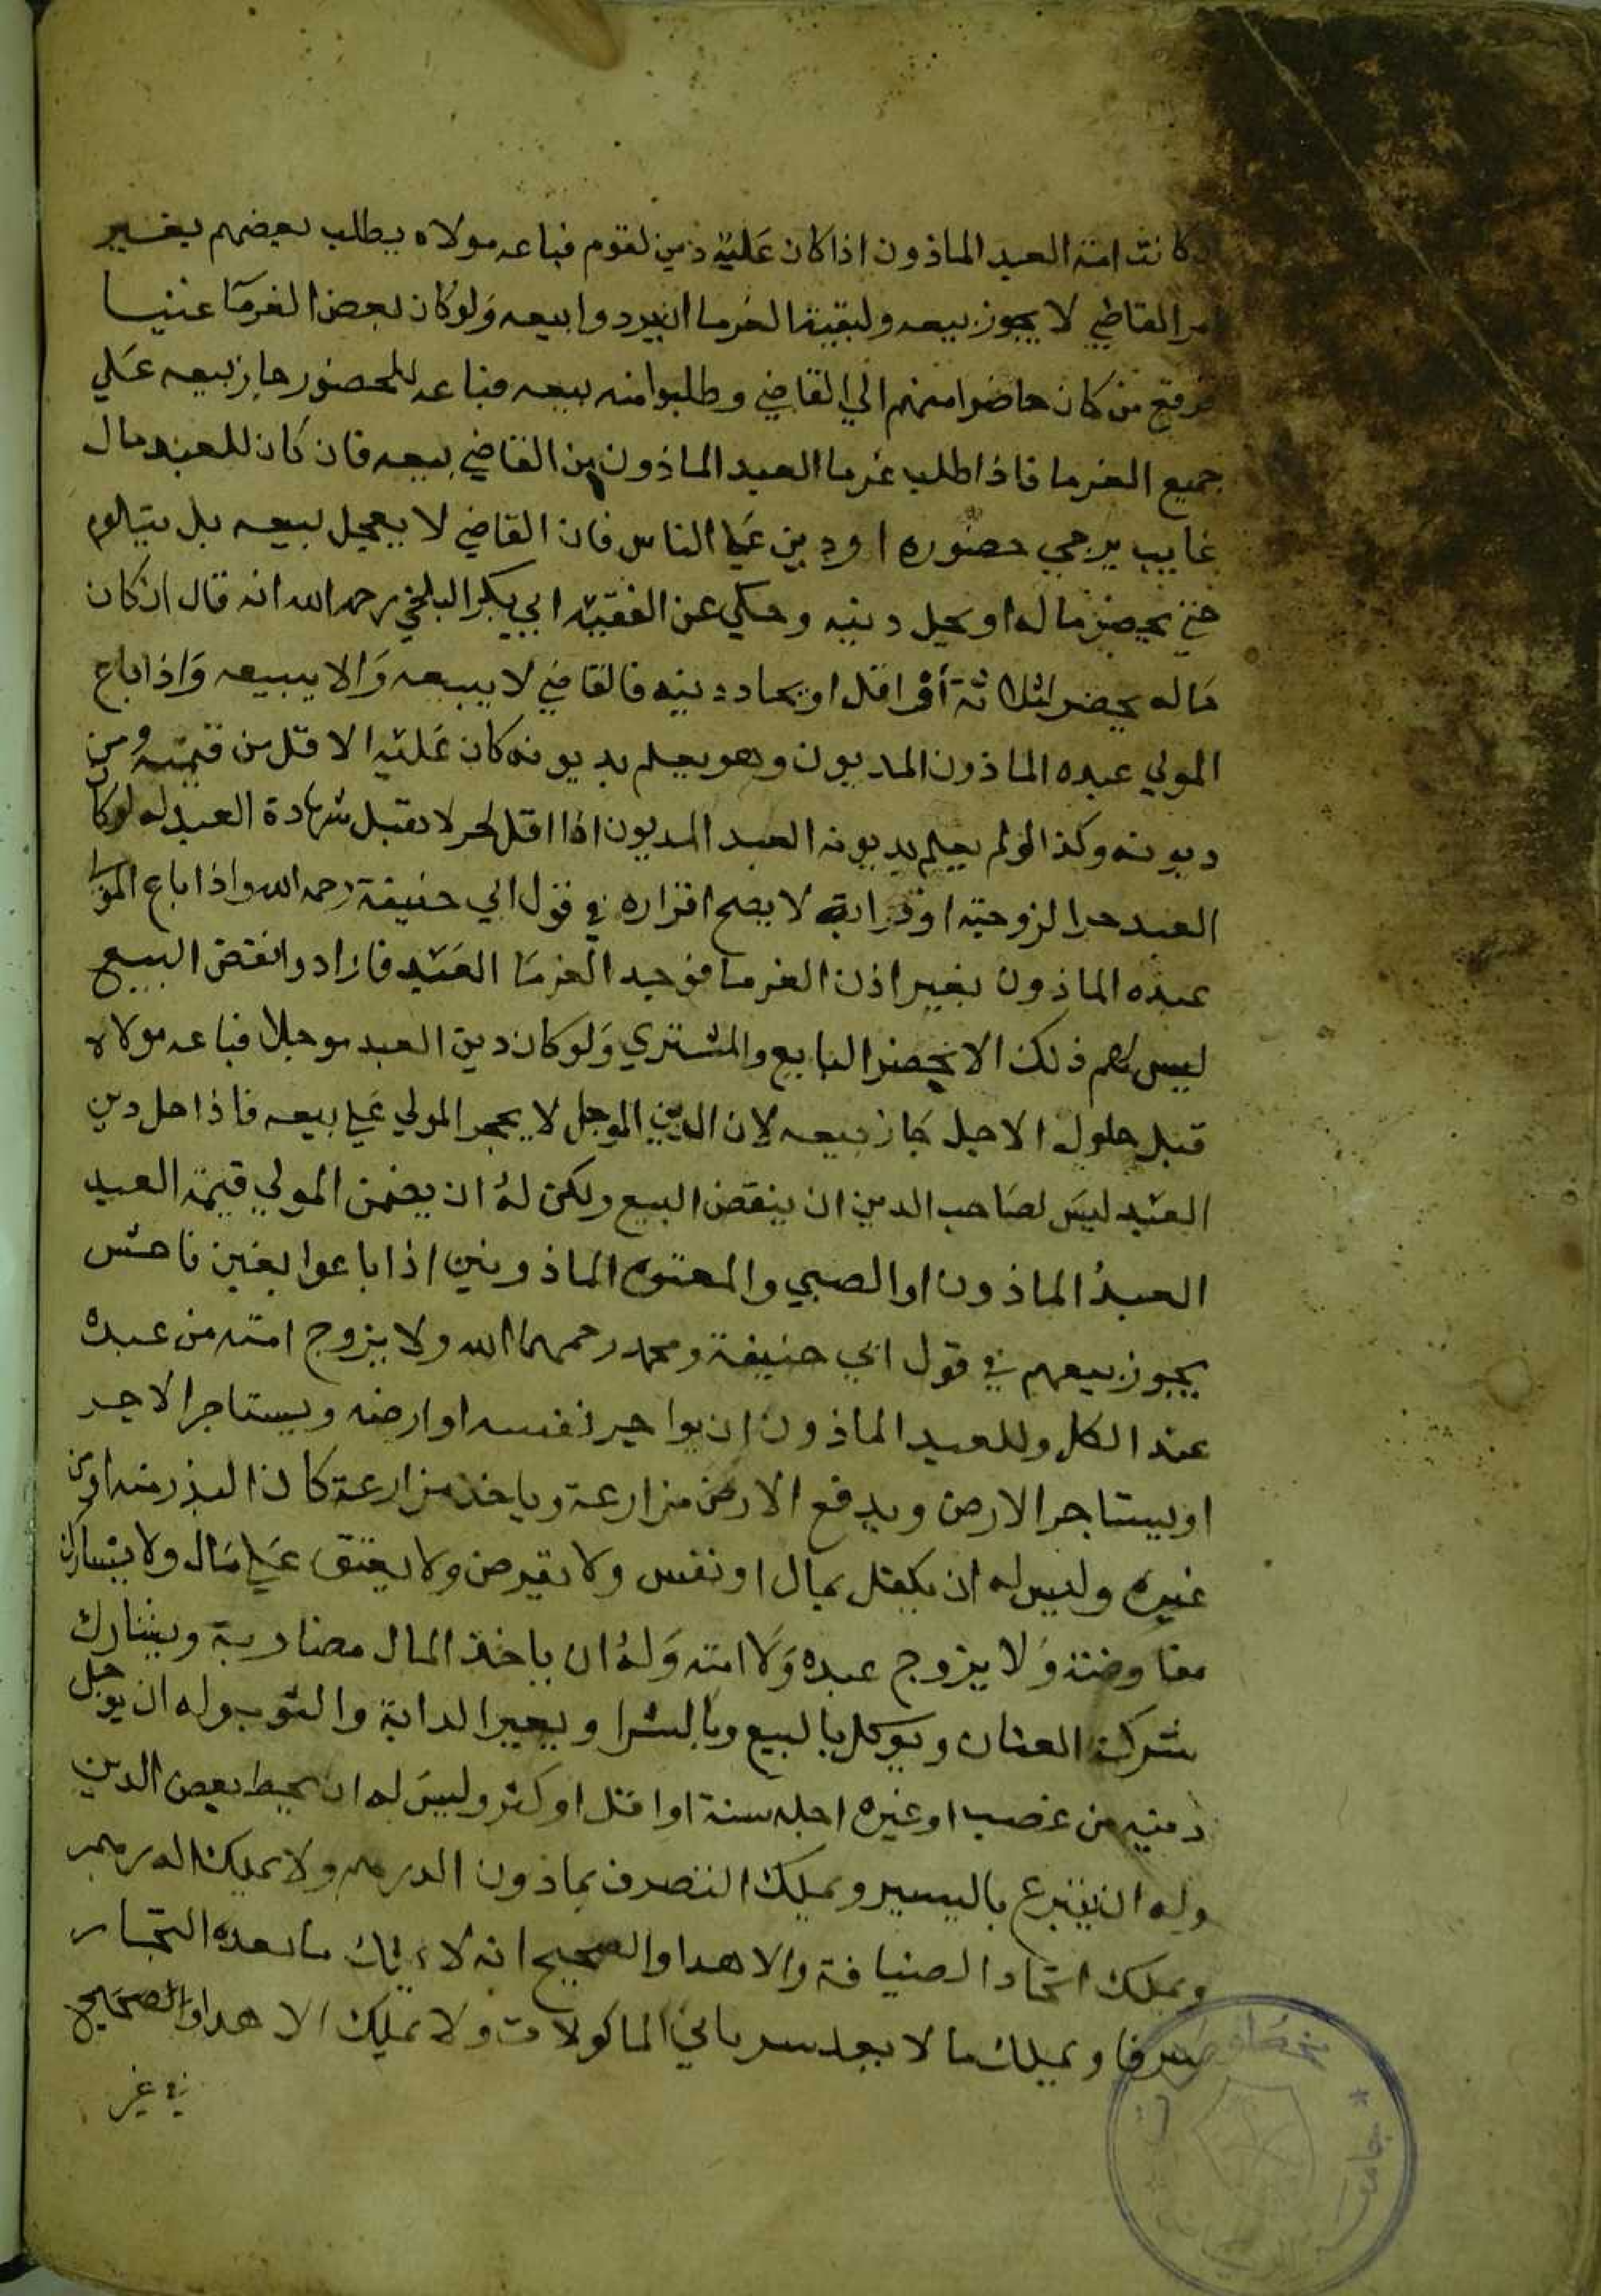 كانت امة العبد الماذون اذا كان عليه دين لقوم فباعه مولاه بطلب بعضهم بغير
امر القاضي لا يجوز بيعه ولبقية الغرما ان يردوا بيعه ولو كان بعض الغرما غنيبا
فرفع من كان حاضرا منهم الي القاضي وطلبوا منه بيعه فباعه للحضور جاز بيعه علي
جميع الغرما فاذا طلب غرما العبد الماذون من القاضي بيعه فان كان للعبد مال
غايب يرجي حضوره او دين علي الناس فان القاضي لا يعجل ببيعه بل يتلوم
حتي يحضر ماله او يحل دينه وحكي عن الفقيه ابي بكر البلخي رحمه الله انه قال ان كان
ماله يحضر لثلاثة او اقل او يحل دينه فالقاضي لا يبيعه والا يبيعه واذا باع
المولي عبده الماذون المديون وهو يعلم بديونه كان عليه الاقل من قيمته ومن
ديونه وكذا لو لم يعلم بديونه العبد المديون اذا اقل لحر لا تقبل شهادة العبد له لو كان
العبد حرا لزوجية او قرابة لا يصح اقراره في قول ابي حنيفة رحمه الله واذا باع المولي
عبده الماذون بغير اذن الغرما فوجد الغرما العبد فارادوا نقض البيع
ليس لهم ذلك الا بحضر البايع والمشتري ولو كان دين العبد موجلا فباعه مولاه
قبل حلول الاجل جاز بيعه لان الدين الموجل لا يحجر المولي علي بيعه فاذا حل دين
العبد ليس لصاحب الدين ان ينقض البيع ولكن له ان يضمن المولي قيمة العبد
العبد الماذون او الصبي والمعتوه الماذونين اذا باعوا بغبن فاحش
يجوز بيعهم في قول ابي حنيفة ومحمد رحمهما الله ولا يزوج امته من عبده
عند الكل وللعبد الماذون ان يواجر نفسه او ارضه ويستاجر الاجير
او يستاجر الارض ويدفع الارض مزارعة وياخذ مزارعة كان البذر منه او من
غيره وليس له ان يكفل بمال او نفس ولا يقرض ولا يعتق علي مال ولا يشارك
مفاوضة ولا يزوج عبده ولا امته وله ان ياخذ المال مضاربة ويشارك
شركة العنان ويوكل بالبيع وبالشرا ويعير الدابة والثوب وله ان يوجل
دينه من غصب او غيره اجله سنة او اقل او كثر وليس له ان يحط بعض الدين
وله ان يتبرع باليسير ويملك التصرف بما دون الدرهم ولا يملك الدرهم
ويملك اتخاذ الضيافة والاهدا والصحيح انه لا يملك ما يعده التجار
سرفا ويملك ما لا يعد سرفا في الماكولات ولا يملك الاهدا والصحيح
في غير